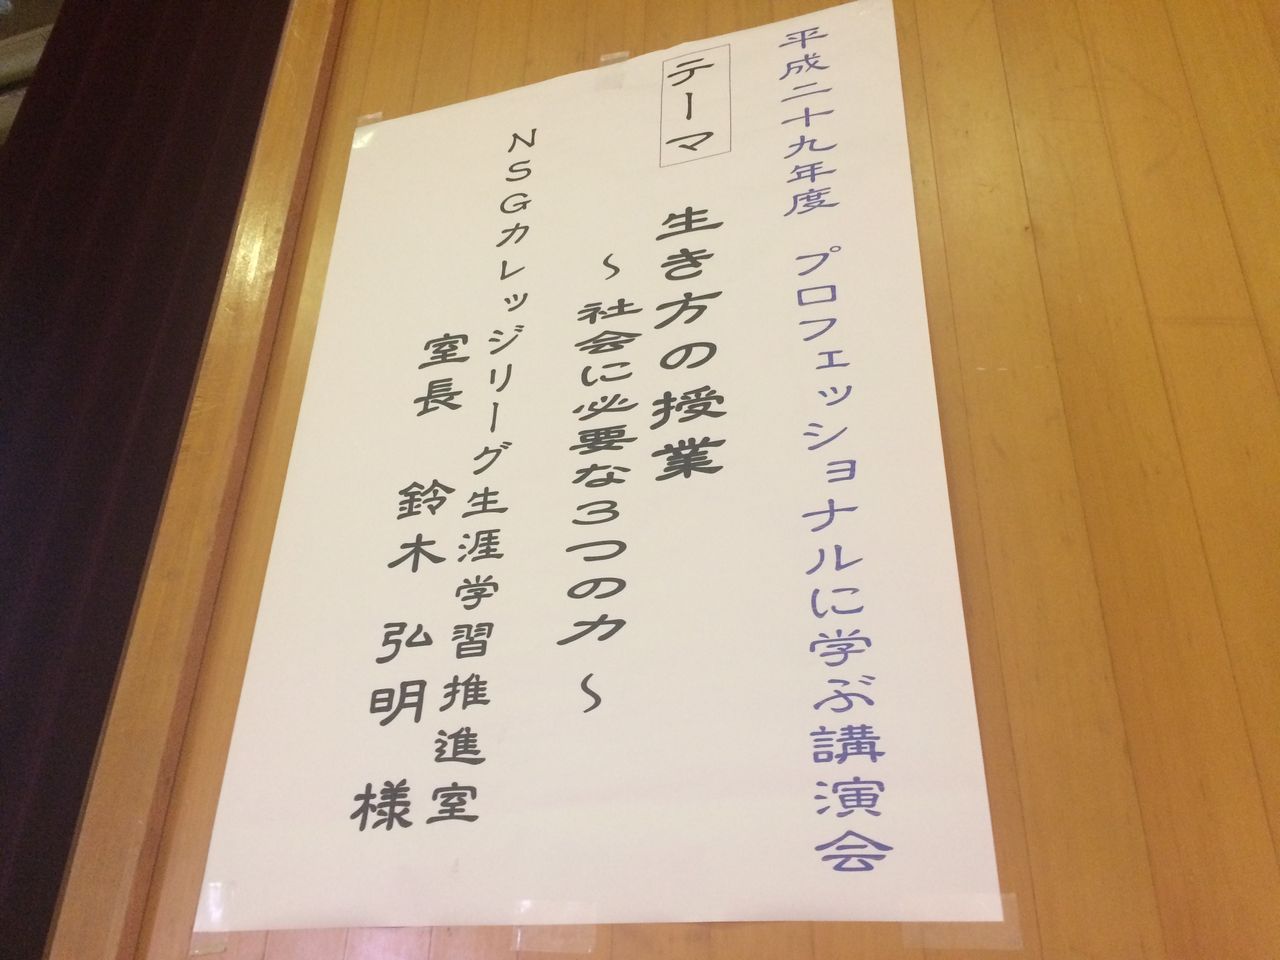 平成二十九年度 プロフェッショナルに学ぶ講演会
テーマ 生き方の授業
～社会に必要な3つの力～
NSGカレッジリーグ生涯学習推進室
室長 鈴木 弘明 様